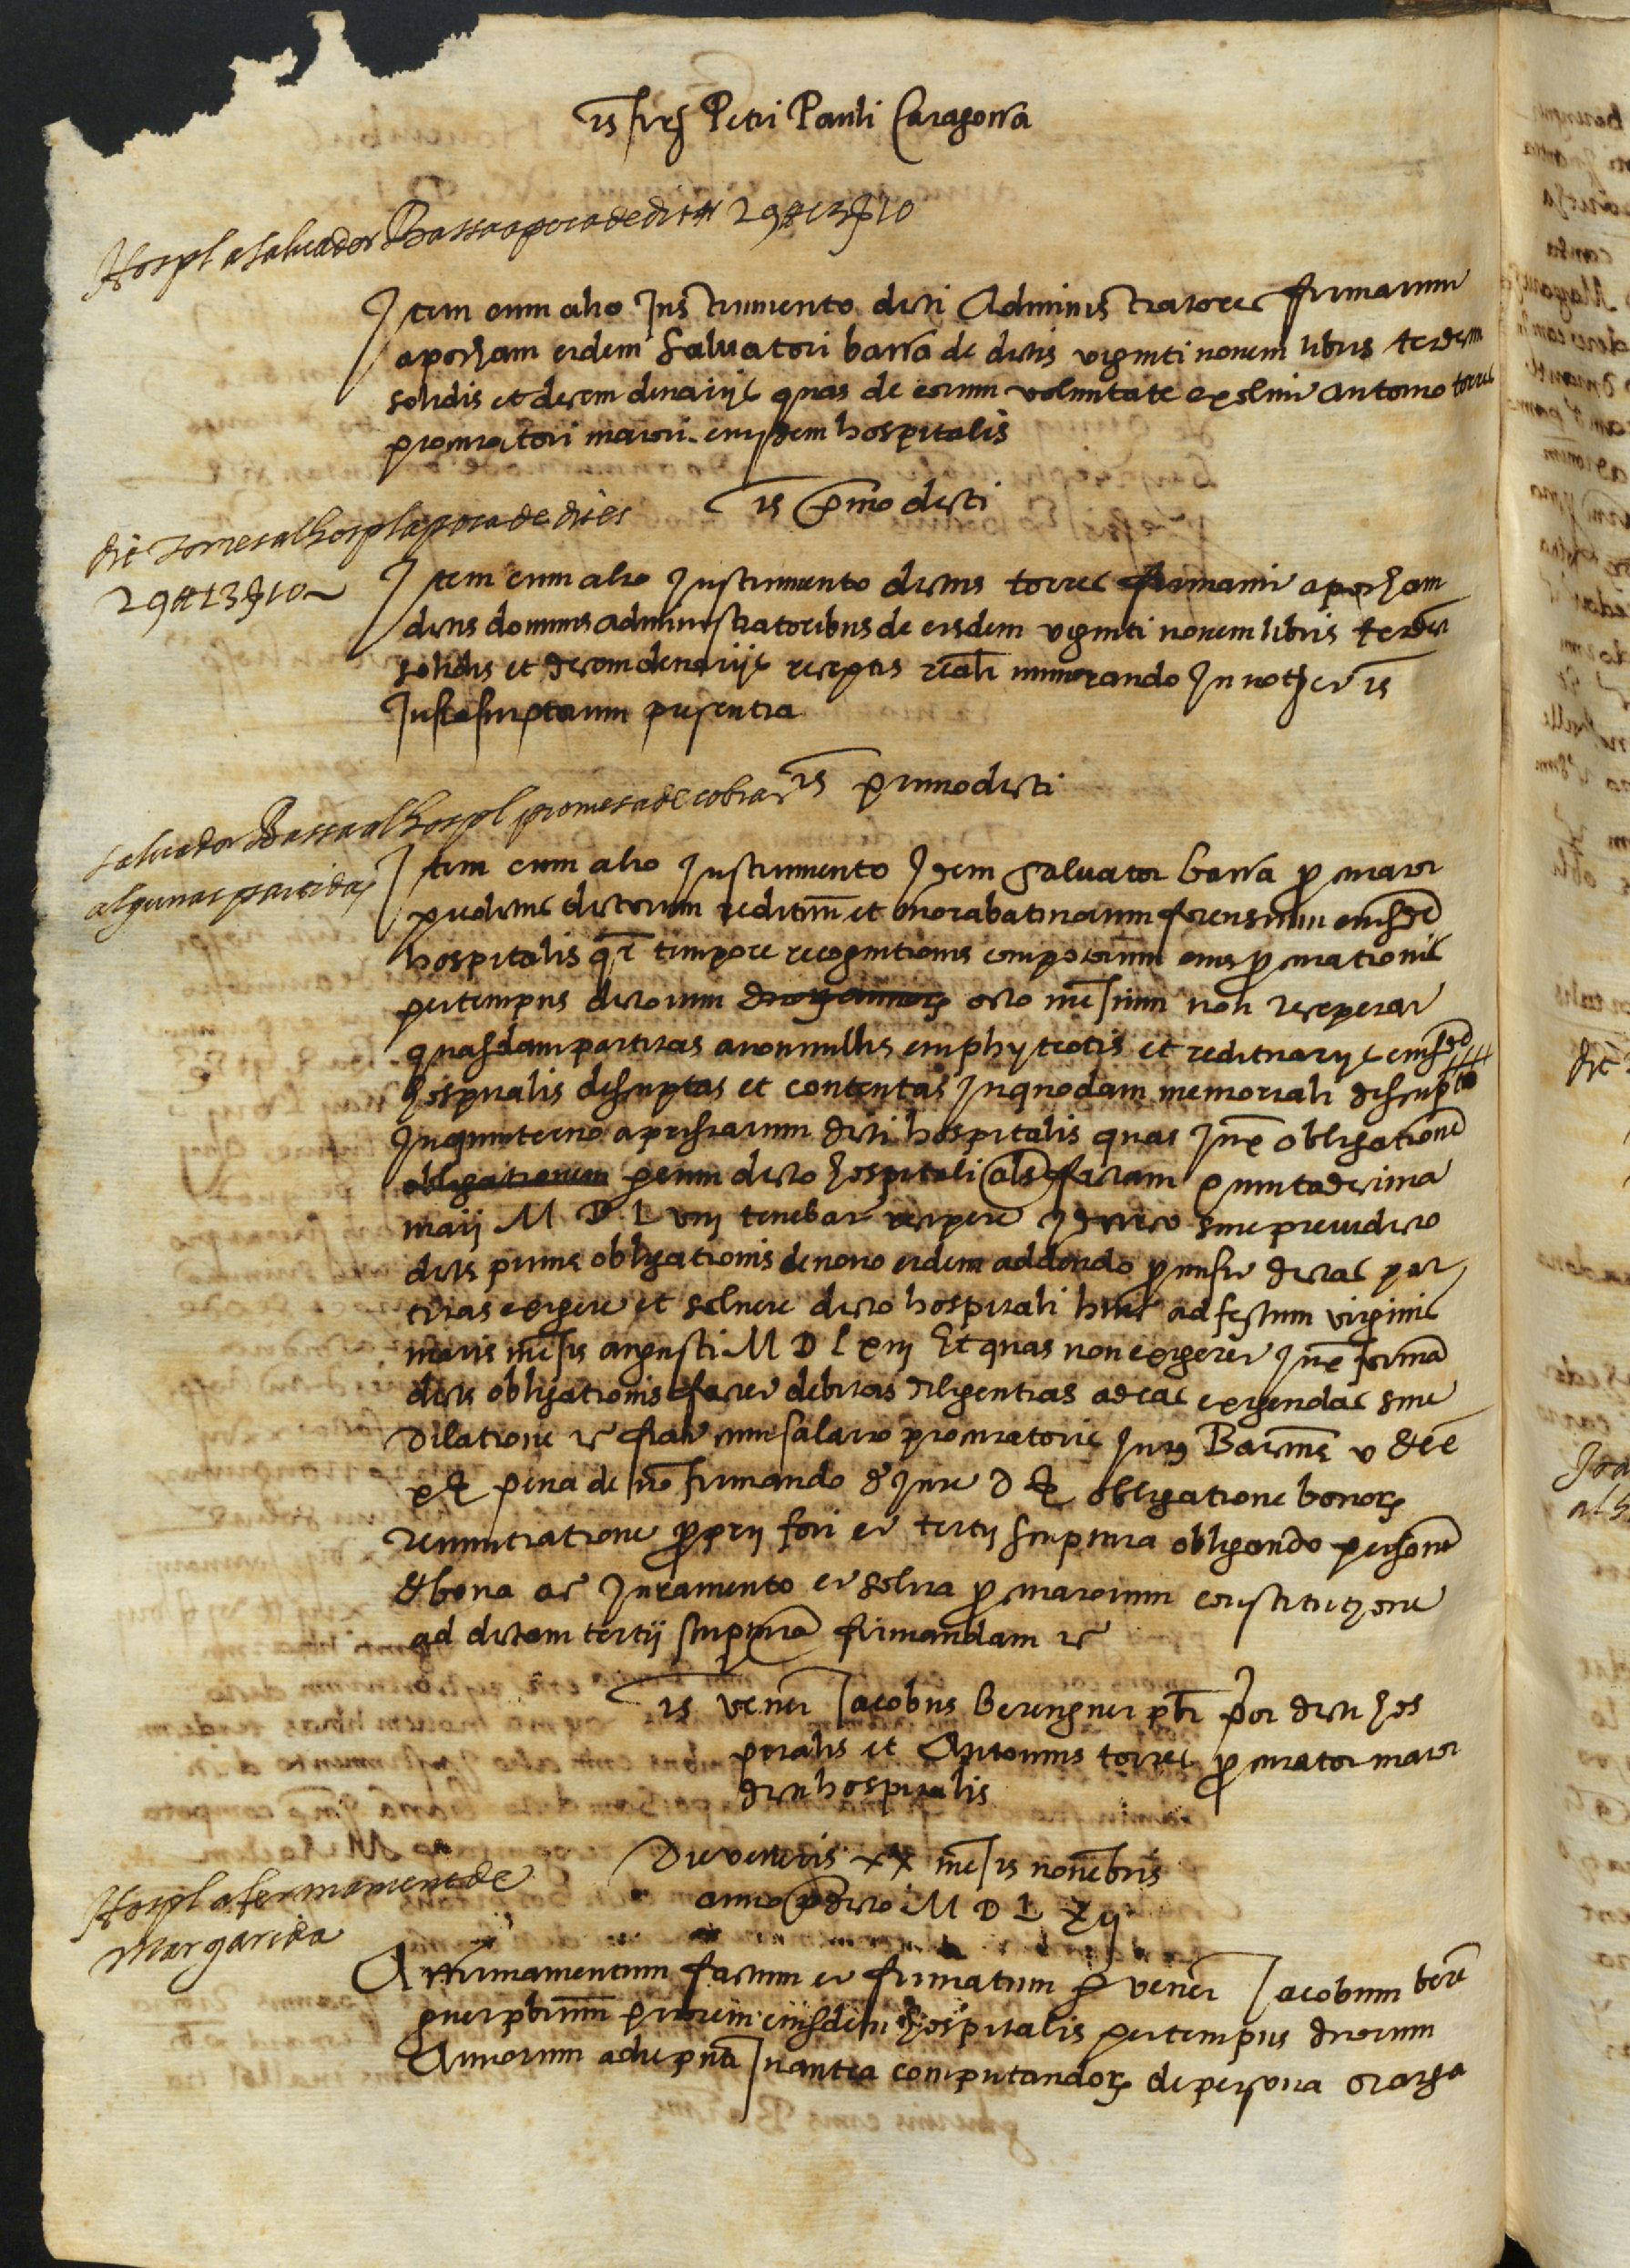 ts fres Petri Pauli Caragossa
Hospl a Saluador Bassa apoca de dit ₶ 29 ₶ 13 ß 10
Item cum alio Instrumento dicti Administratores firmarunt
apocham eidem Saluatori bassa de dictis viginti novem libris tredecim
solidis et decem denariis quas de eorum voluntate exsolvit Antonio torres
procuratori maiori eiusdem hospitalis
ts primo dicti
dit torres al hospl apoca de dites
29 ₶ 13 ß 10
Item cum alio Instrumento dictus torres firmavit apocham
dictis dominis administratoribus de eisdem viginti novem libris tredecim
solidis et decem denariis receptis realr numerando In not et ts
Infrascriptorum presentia
ts primo dicti
Saluador Bassa al hospl promesa de cobrar
algunas partidas
Item cum alio Instrumento Idem Saluator bassa procurator
predictus dictorum redituum et morabatinorum forensium eiusde
hospitalis qr tempore recognitionis compotorum eius procurationis
per tempus dictorum octo mensium non receperat
quasdam partitas a nonnullis emphyteotis et redituariis eiusde
hospitalis descriptas et contentas In quodam memoriali descripto
In quinterno aprisiarum dicti hospitalis quas Iuxe obligatione
obligationem per eum dicto hospitali als factam quintadecima
maii M D L viiij tenebat recipere Ideo sine preiudicio
dicte prime obligationis de novo eidem addendo promisit dictas par
titas exigere et solvere dicto hospitali hinc ad festum virginis
maris mensis augusti M D L xiij Et quas non exigeret Iuxe forma
dicte obligationis faceret debitas diligentias ad eas exigendas sine
dilatione et fiat cum salario procuratoris Intus Barne v & extra
x ß pena de no firmando de Iure D ß obligatione bonors
renuntiatione proprii fori et tertii scriptura obligando persone
& bona ac Iuramento et solita procuratorum constitutione
ad dictam tertii scriptura firmandam et
ts vener Jacobus berenguer pbr por dicti hos
pitalis et Antonius torres procurator maior
dicti hospitalis
Die veneris xx mensis novebris
anno predicto M D L xij
Hospl afermament de
Margarida
Affirmamentum factum et firmatum per vener Jacobum bere
guer pbrum priorem eiusdem hospitalis per tempus duorum
Annorum a die pnti Inantea computandors de persona